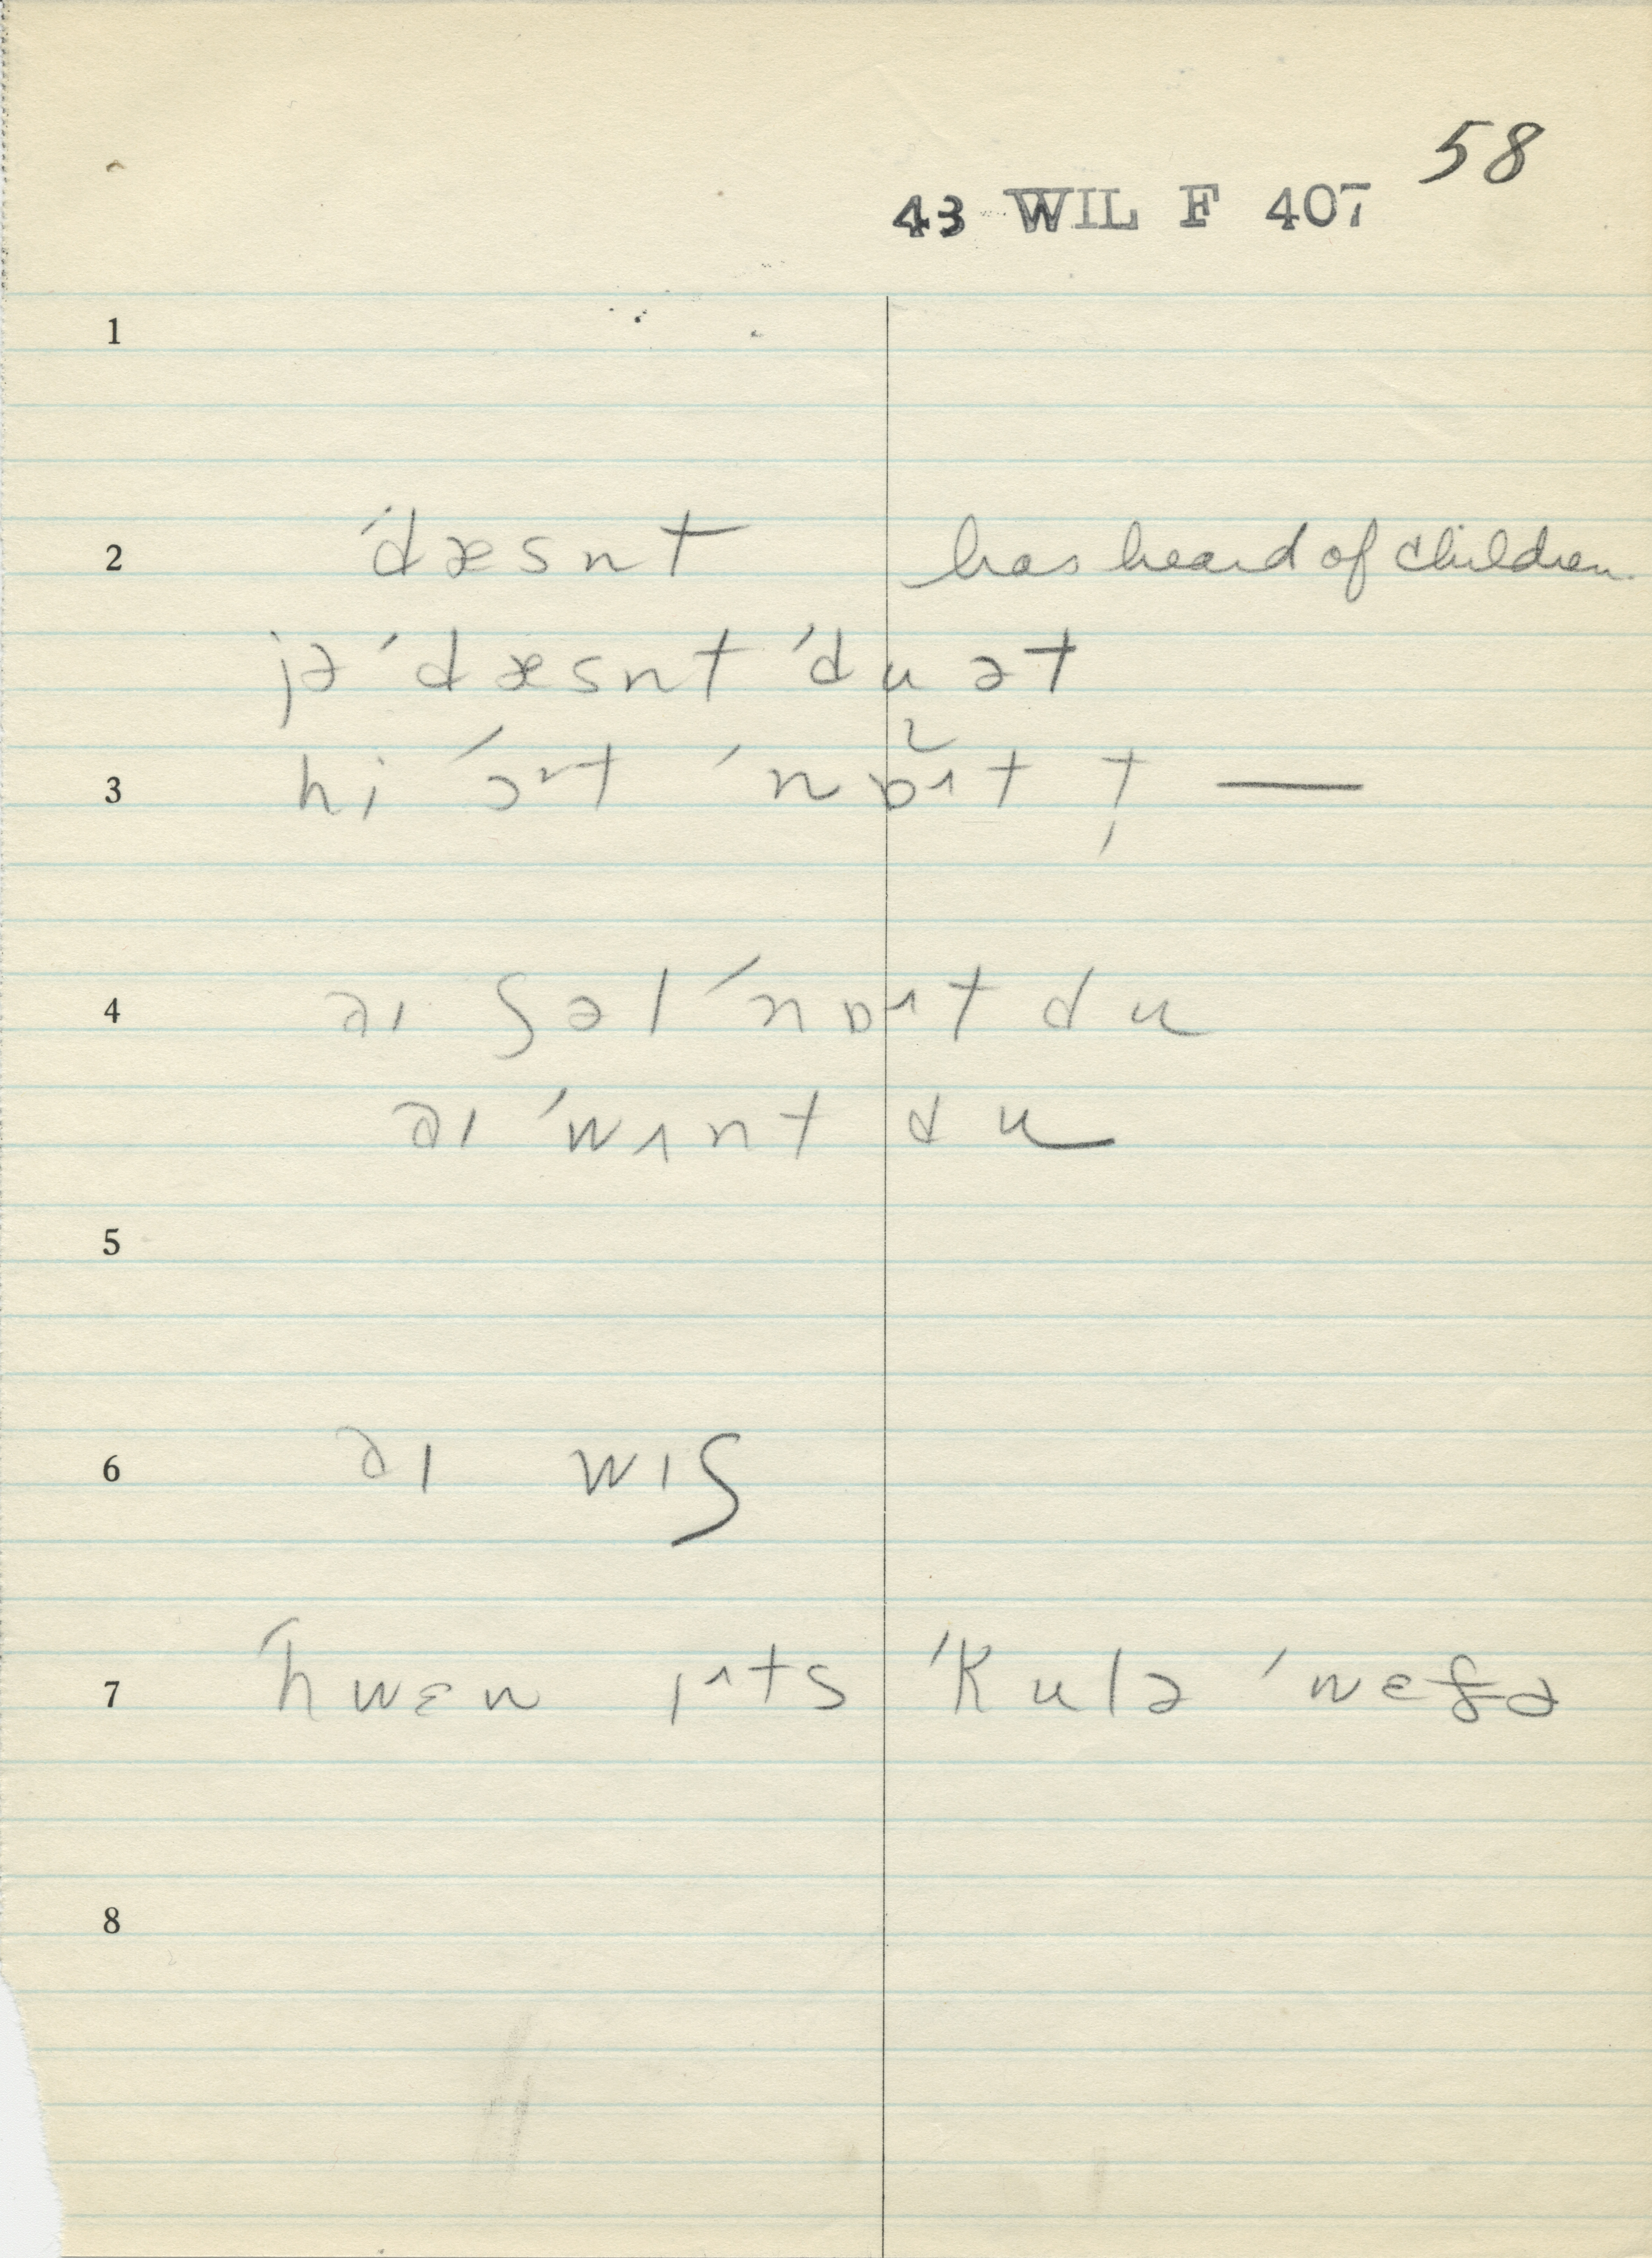 58
43 WIL F 407
1
2 ˈdæsnt has heard of children
jə ˈdæsnt ˈdu ət
3 hi ˈɔt ˈnɒt t̩ —
4 aɪ ʃəl ˈnɒt du
aɪ ˈwʌnt du
5
6 aɪ wɪʃ
7 ˈhwɛn ɪts ˈkulə ˈwɛðə
8